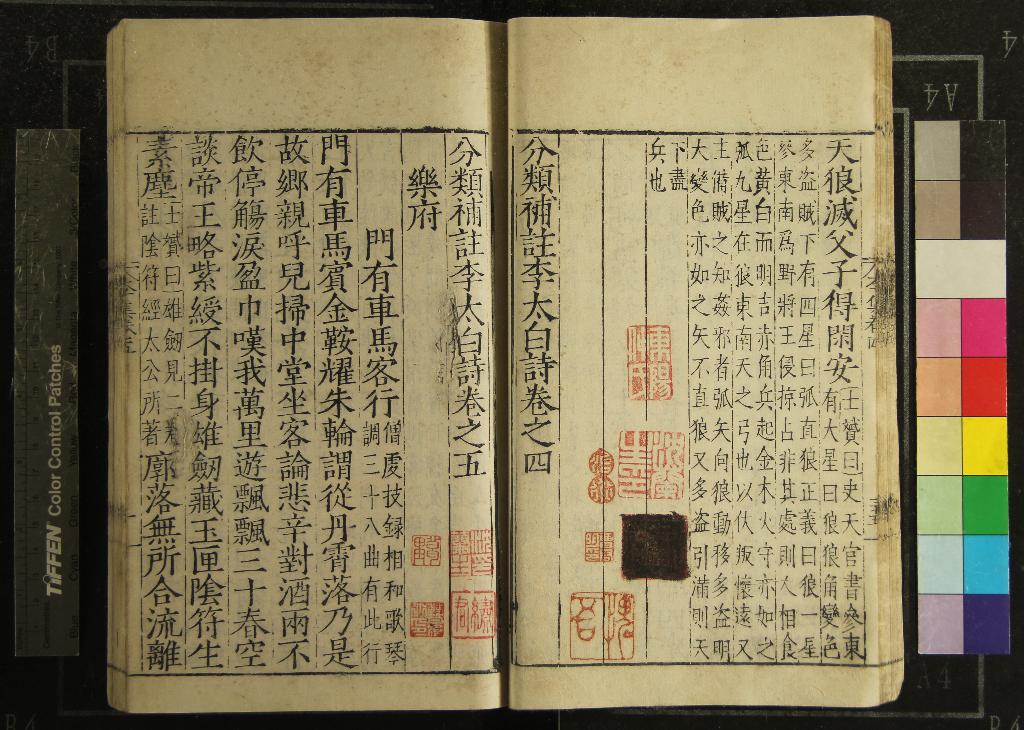 天狼滅父子得閑安
士贇曰史天官書參東
有大星曰狼狼角變色
多盜賊下有四星曰弧直狼正義曰狼一星
參東南爲野將王侵掠占非其處則人相食
色黃白而明吉赤角兵起金木火守亦如之
弧九星在狼東南天之弓也以伐叛懷遠又
主備賊之知姦邪者弧矢向狼動移多盜明
大變色亦如之矢不直狼又多盜引滿則天
下盡
兵也
分類補註李太白詩卷之四
分類補註李太白詩卷之五
樂府
門有車馬客行
僧虔技録相和歌琴
調三十八曲有此行
門有車馬賓金鞍耀朱輪謂從丹霄落乃是
故鄉親呼兒掃中堂坐客論悲辛對酒兩不
飲停觴淚盈巾嘆我萬里遊飄飄三十春空
談帝王略紫綬不掛身雄劒藏玉匣陰符生
素塵
士贇曰雄劒見二卷
註陰符經太公所著
廓落無所合流離
TIFFEN Color Control Patches
A4
A4
B4